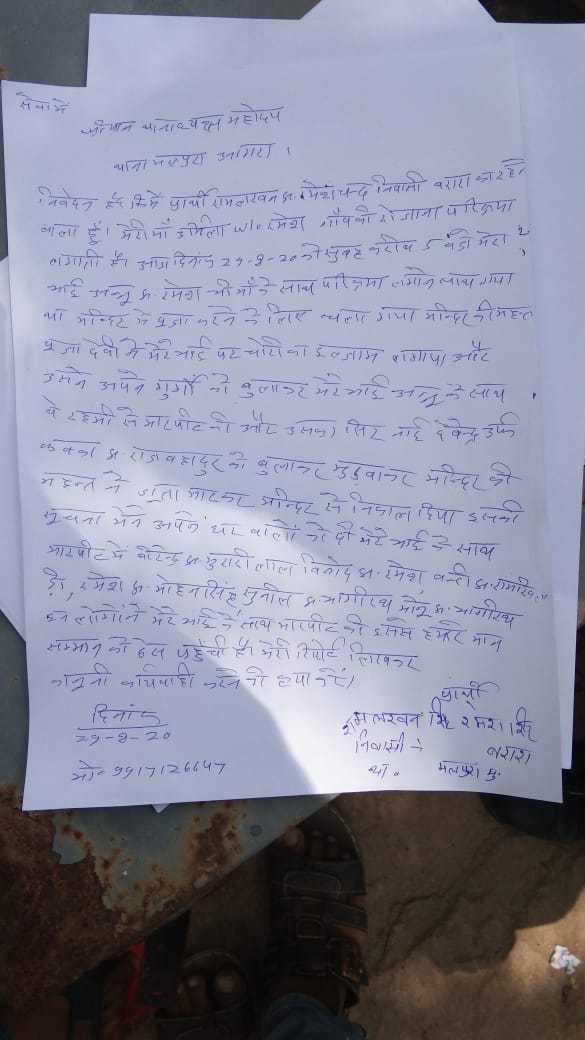 सेवा में
श्रीमान थानाध्यक्ष महोदय
थाना मलपुरा आगरा ।
निवेदन है कि मैं प्रार्थी रामलखन S/o रमेशचन्द निवासी बरारा का रहने
वाला हूँ। मेरी माँ उर्मिला W/o रमेश गाँव की रोजाना परिक्रमा
लगाती है। आज दिनांक 29-8-20 को सुबह करीब 5 बजे मेरा
भाई अन्नू S/o रमेश भी माँ के साथ परिक्रमा लगाने साथ गया
था मन्दिर में पूजा करने के लिए चला गया मन्दिर की महन्त
पूजा देवी ने मेरे भाई पर चोरी का इल्जाम लगाया और
उसने अपने गुर्गों को बुलाकर मेरे भाई अन्नू के साथ
बेरहमी से मारपीट की और उसका सिर नाई देवेन्द्र उर्फ
कक्का S/o राजबहादुर को बुलाकर मुड़वाकर मन्दिर की
महन्त ने जूता मारकर मन्दिर से निकाल दिया इसकी
सूचना मैने अपने घर वालों को दी मेरे भाई के साथ
मारपीट में वीरेन्द्र S/o मुरारीलाल विनोद S/o रमेश, बन्टी S/o
रमेश S/o मोहनसिंह सुनील S/o भागीरथ मोनू S/o भागीरथ
इन लोगों ने मेरे भाई के साथ मारपीट की इससे हमारे मान
सम्मान को ठेस पहुंची है। मेरी रिपोर्ट लिखकर
कानूनी कार्यवाही करने की कृपा करें।
प्रार्थी
दिनांक
29-8-20
रामलखन सिंह रमेश सिंह
निवासी → बरारा
था. मलपुरा
मो० 9917126647